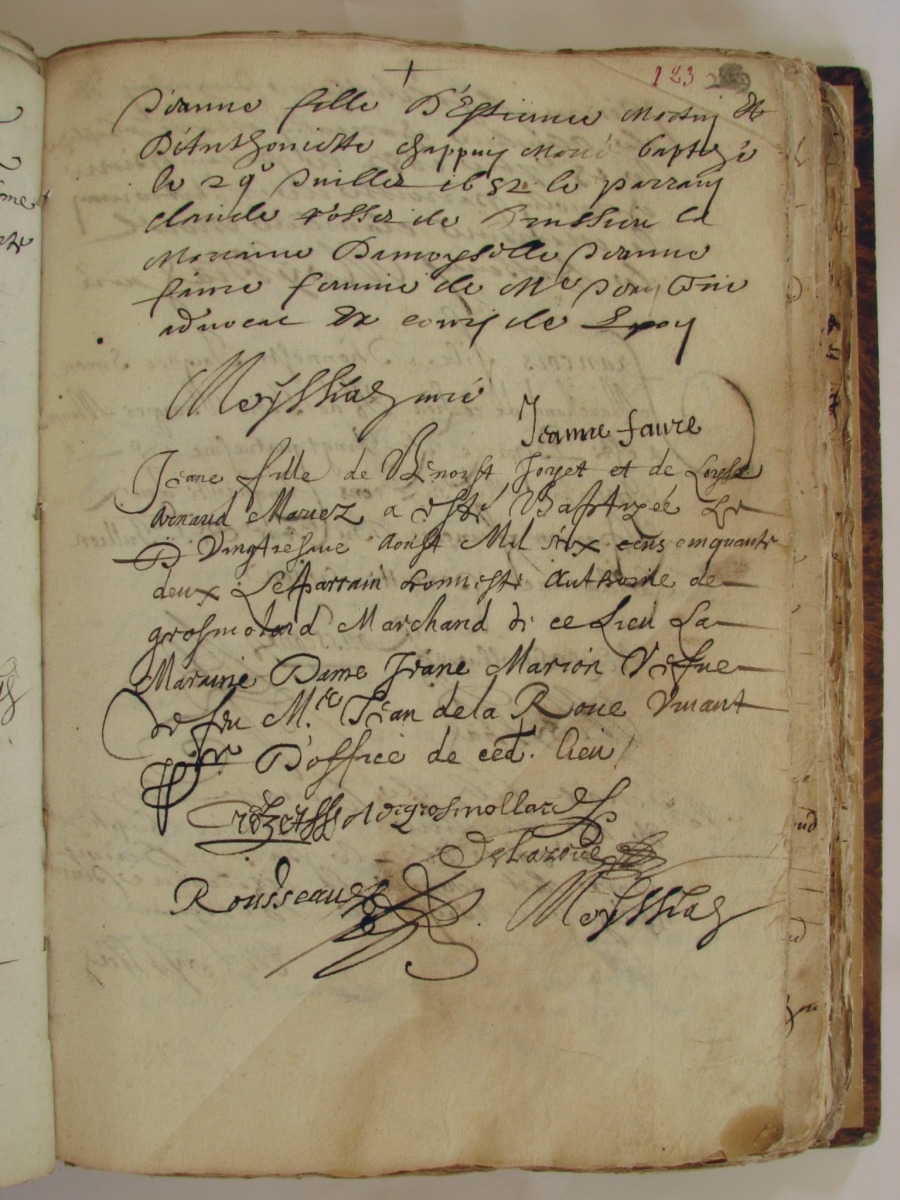 123
Jeanne fille D'Estienne Martin &
D'Anthoinette Chappuy Mariés baptizée
le 29e Juillet 1652 le parrain
claude de la
Marraine Damoyselle Jeanne
faure femme de Me
advocat de
Meyssias curé
Jeanne faure
Jeane fille de Benoist Joyet et de Loyse
Arnaud Mariez a esté Baptizée Le
Vingtiesme Aoust Mil six cens cinquante
deux Le Parrain honneste Anthoine de
grosmolard Marchand de ce Lieu La
Maraine Dame Jeane Marion Vefue
de feu M.re Jean de la Roue Viuant
D'office de ced. lieu
A degrosmollard
Delaroue
Rousseau
Meyssias